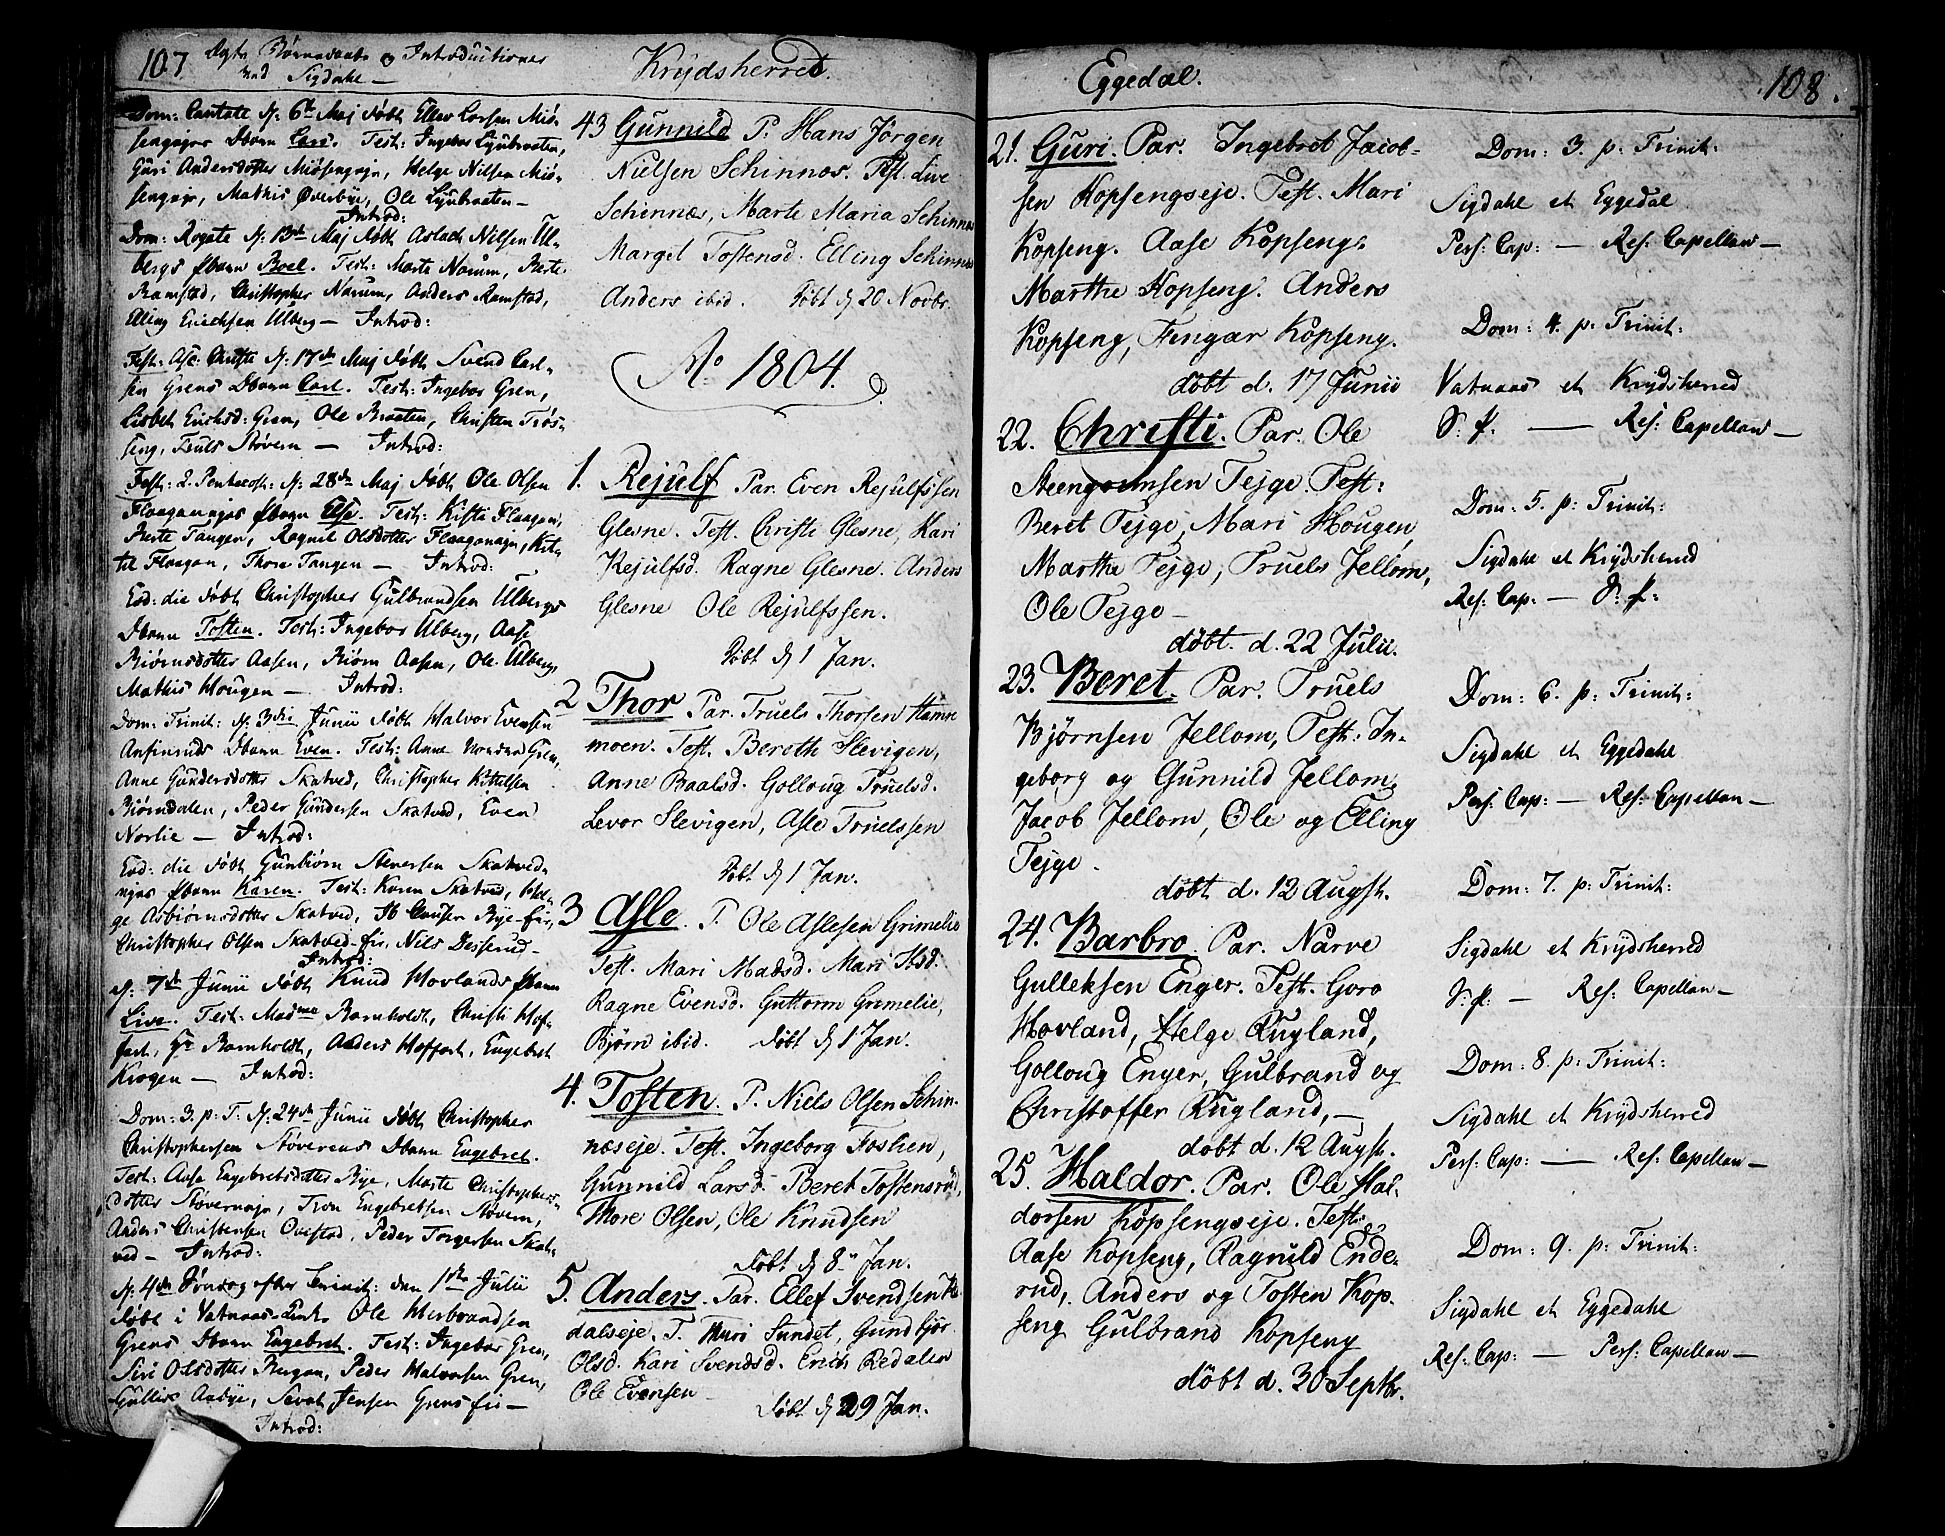 107 Ægte Børnedaab og Introductioner
ved Sigdahl —
Dom: Cantate d. 6te Maj døbt Ellev Larsen Miø-
sengejes Dbarn Lars. Test: Ingebor Ljubraaten,
Guri Andersdotter Miøsengejn, Helge Nilsen Miø-
sengejr, Mathis Øverbÿe, Ole Ljubraaten —
Introd:
Dom: Rogate d. 13de Maj døbt Aslach Nilsen Ul-
bergs Pbarn Boel. Test: Marte Narum, Berte
Ramstad, Christopher Narum, Anders Ramstad,
Elling Erichsen Ulberg — Introd:
Fest: Asc: Christi d. 17de Maj døbt Svend Carl-
sen Grens Dbarn Carl. Test: Ingebor Gren,
Lisbeth Erichsd: Gren, Ole Braaten, Christen Frøs-
seng, Truls Støvern — Introd:
Fest: 2. Pentecost: d. 28de Maj døbt Ole Olsen
Flaagansejes Pbarn Else. Test: Kisti Flaagan,
Berte Tangen, Ragnil Olsdotter Flaaganejn, Kit-
til Flaagan, Thore Tangen — Introd:
Eod: die døbt Christopher Gulbrandsen Ulbergs
Dbarn Tosten. Test: Ingebor Ulberg, Aase
Biørnsdotter Aasen, Biørn Aasen, Ole Ulberg,
Mathis Hougen — Introd:
Dom: Trinit: d. 3die Junii døbt Halvor Evensen
Anfinruds Dbarn Even. Test: Anne Gren,
Anne Gundersdotter Skatved, Christopher Kittelsen
Biørndalen, Peder Gundersen Skatved, Even
Norlie — Introd:
Eod: die døbt Gunbiørn Stenersen Skatved-
ejes Pbarn Karen. Test: Karen Skatved, Hel-
ge Asbiørnsdotter Skatved, Clausen Bye-eje,
Christopher Olsen Skatved-eje, Nils Desserud —
Introd:
d. 7de Junii døbt Knud Hovlands Pbarn
Live. Test: Madme Ramholdt, Christi Hof-
fart, Hr Ramholdt, Anders Hoffart, Engebret
Krogen — Introd:
Dom: 3. p: T. d. 24de Junii døbt Christopher
Christophersen Støverens Dbarn Engebret.
Test: Aase Engebretsdotter Bye, Marte Christophers-
dotter Støvernejn, Tron Engebretsen Støvern,
Anders Christensen Ovestad, Peder Torgersen Skat-
ved — Introd:
d. 4de Søndag efter Trinit: den 1ste Julii
døbt i Vatnaas Kirke Ole Herbrandsen
Grens Dbarn Engebret. Test: Ingebor Gren,
Siri Olsdotter Bergan, Peder Halvorsen Gren,
Gullik Aabye, Sevat Jensen Grens eje —
Introd:
Krÿdsherred.
43 Gunnild P. Hans Jörgen
Nielsen Schinnæs. Test. Live
Schinnæs, Marte Maria Schinnæs
Margit Tostensd. Elling Schinnæs
Anders ibid. Døbt d 20 Novbr.
Ao 1804.
1. Rejulf Par. Even Rejulfssen
Glesne. Test. Christi Glesne, Kari
Rejulfsd. Ragne Glesne. Anders
Glesne Ole Rejulfssen.
Døbt d 1 Jan.
2 Thor Par. Truels Thorsen Hamre
moen. Test. Bereth Slevigen,
Anne Baalsd. Golloug Truelsd.
Levor Slevigen, Asle Truelssen
Døbt d 1 Jan.
3 Asle. P. Ole Aslesen Grimelie
Test. Mari Madsd. Mari Ibsd.
Ragne Evensd. Guttorm Grimelie,
Bjørn ibid. Døbt d 1 Jan.
4. Tosten. P. Niels Olsen Schin-
næseje. Test. Ingeborg Foslien,
Gunnild Larsd. Beret Tostensrud,
Thore Olsen, Ole Knudsen
Døbt d 8 Jan.
5. Anders. Par. Ellef Svendsen Re
dalseje. T. Mari Sundet, Gundbjör
Olsd. Kari Svendsd. Erich Redalen
Ole Evensen —
Døbt d 29 Jan.
Eggedal. 108.
21. Guri. Par. Ingebret Jacob-
sen Kopsengseje. Test. Mari
Kopseng. Aase Kopseng.
Marthe Kopseng. Anders
Kopseng, Fengar Kopseng.
døbt d. 17 Junii
22. Christi. Par. Ole
Steengrimsen Tejge. Test:
Beret Tejge, Mari Hougen,
Marthe Tejge, Truels Jellom,
Ole Tejge —
døbt. d. 22 Julii.
23. Beret. Par. Truels
Bjørnsen Jellom, Test: In-
geborg og Gunnild Jellom,
Jacob Jellom, Ole og Elling
Tejge.
døbt d. 12 Augst.
24. Barbro. Par. Narve
Gulleksen Enger. Test. Goro
Hovland, Helge Rugland,
Golloug Enger, Gulbrand og
Christoffer Rugland, —
døbt d. 12 Augst.
25. Haldor. Par. Ole Hal-
dorsen Kopsengseje. Test:
Aase Kopseng, Ragnild Ende-
rud, Anders og Tosten Kop-
seng Gulbrand Kopseng
døbt d. 30 Septbr.
Dom: 3. p: Trinit:
Sigdahl et Eggedal
Pers: Cap: — Res: Capellan —
Dom: 4. p: Trinit:
Vatnaas et Krÿdsherred
S: p. — Res: Capellan —
Dom: 5. p: Trinit:
Sigdahl et Krÿdsherred
Res: Cap: — S: p:
Dom: 6. p: Trinit:
Sigdahl et Eggedahl
Pers: Cap: — Res: Capellan —
Dom: 7. p: Trinit:
Sigdahl et Krÿdsherred
S: p: — Res: Capellan —
Dom: 8. p: Trinit:
Sigdahl et Krÿdsherred
Pers: Cap: — Res: Capellan —
Dom: 9. p: Trinit:
Sigdahl et Eggedahl
Res: Cap: — Pers: Capellan —